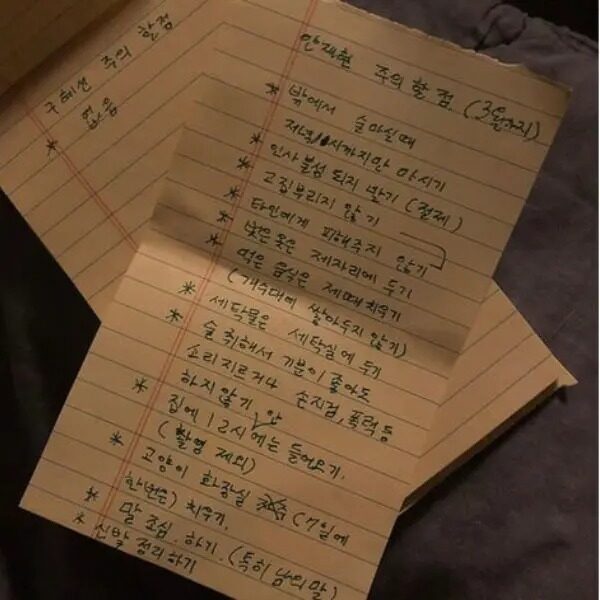 구혜선 주의 할점
* 없음
안재현 주의 할 점 (3월까지)
* 밖에서 술마실때
저녁 10시까지만 마시기
* 인사불성 되지 말기 (절제)
* 고집부리지 않기
* 타인에게 피해주지 않기
* 벗은 옷은 제자리에 두기
* 먹은 음식은 제때 치우기
(개수대에 쌓아두지 않기)
* 세탁물은 세탁실에 두기
* 술 취해서 기분이 좋아도
소리지르거나 손지검, 폭력 등
하지 않기
* 집에 12시 안에는 들어오기.
(촬영 제외)
* 고양이 화장실 (7일에
한번은) 치우기.
* 말 조심. 하기. (특히 남의 말)
* 신발 정리하기